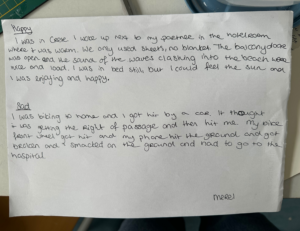 Happy
I was in Crete. I woke up next to my partner in the hotelroom
where it was warm. We only used sheets, no blanket. The balcony door
was open and the sand of the waves clashing into the beach were
nice and loud. I was in bed still, but I could feel the sun and
I was enjoying and happy.
Bad
I was biking to home and I got hit by a car. It thought
it was getting the right of passage and then hit me. My bike
front wheel got hit and my phone hit the ground and got
broken and I smacked on the ground and had to go to the
hospital.
Merel